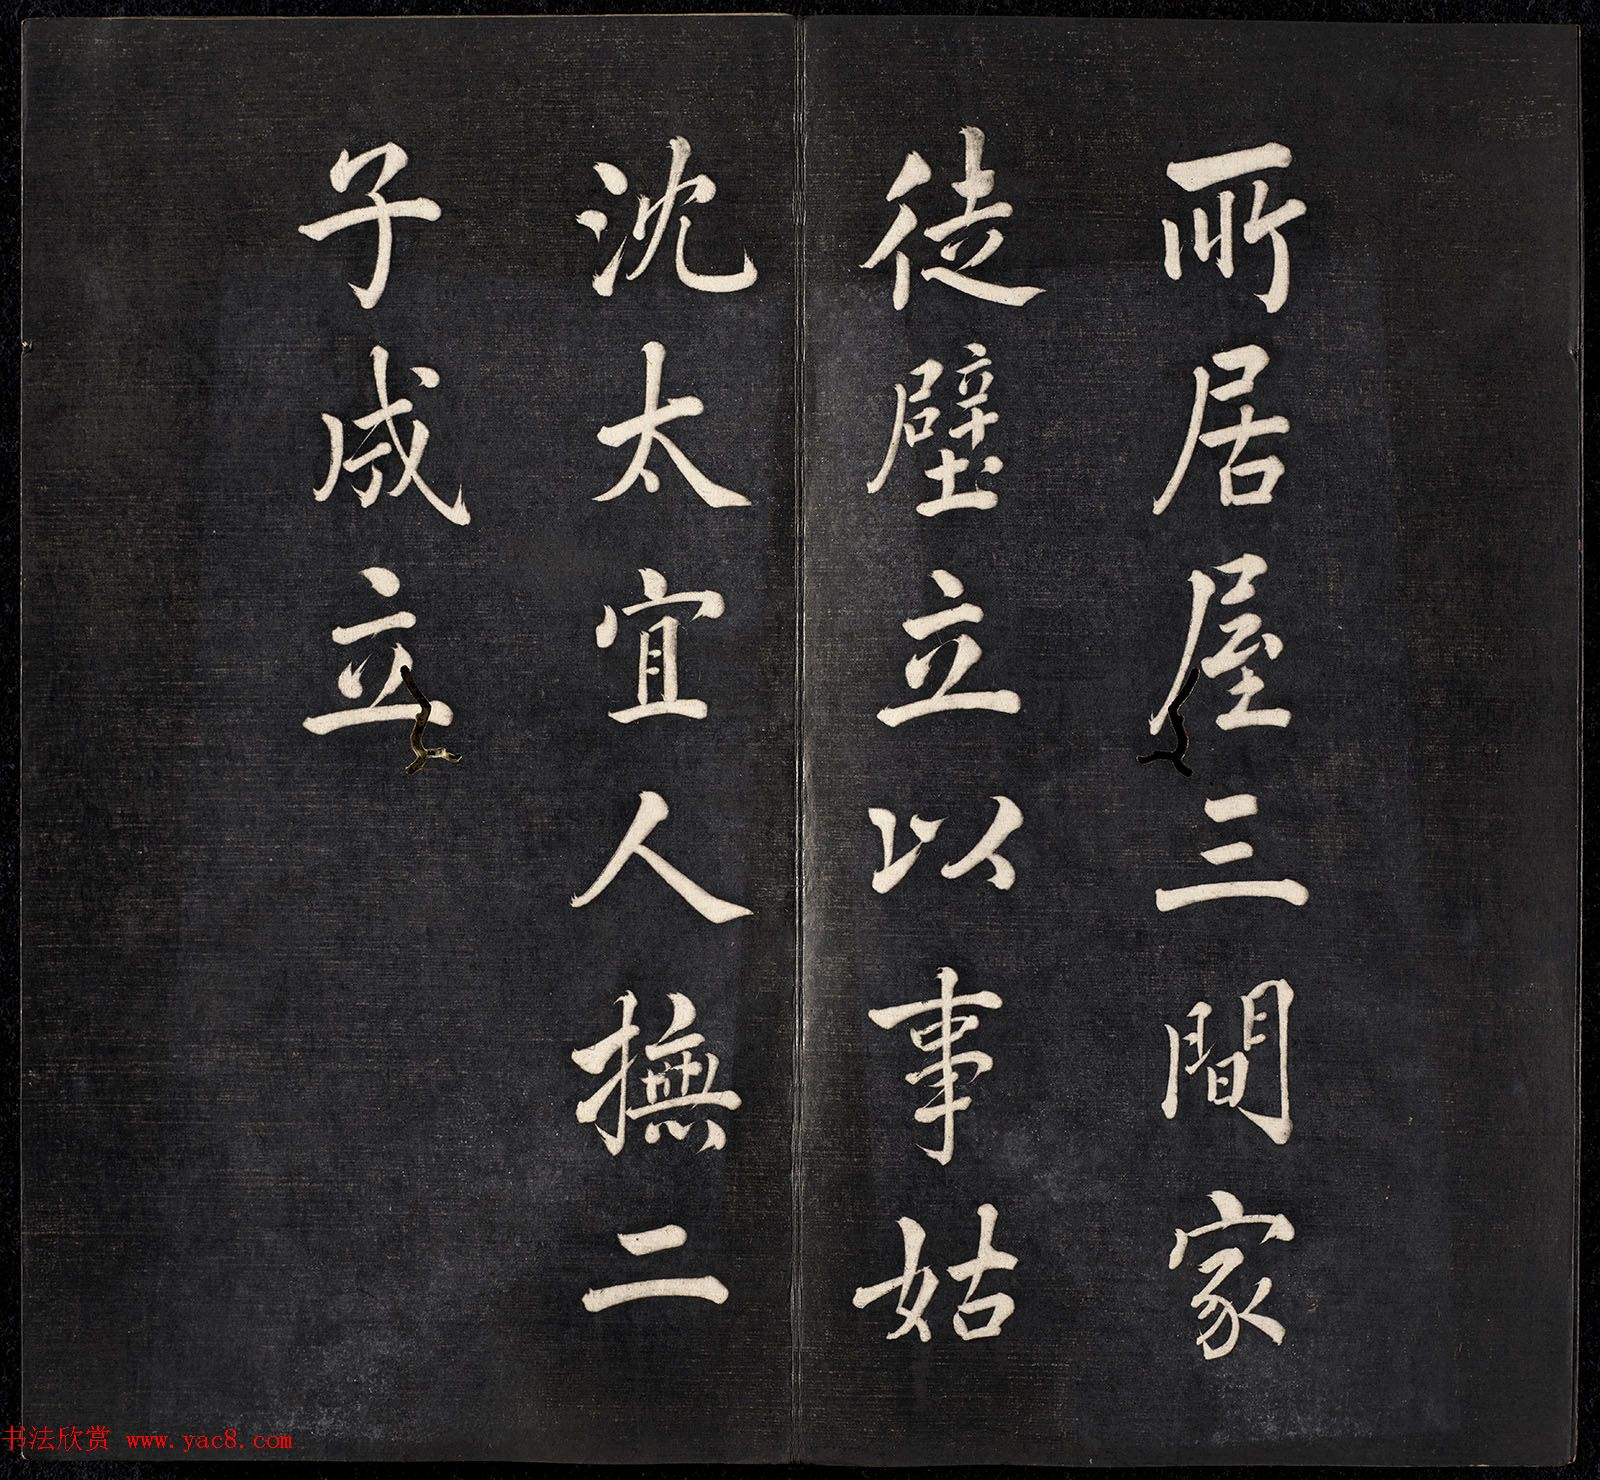 所居屋三間家
徒壁立以事姑
沈太宜人撫二
子成立
书法欣赏 www.yac8.com